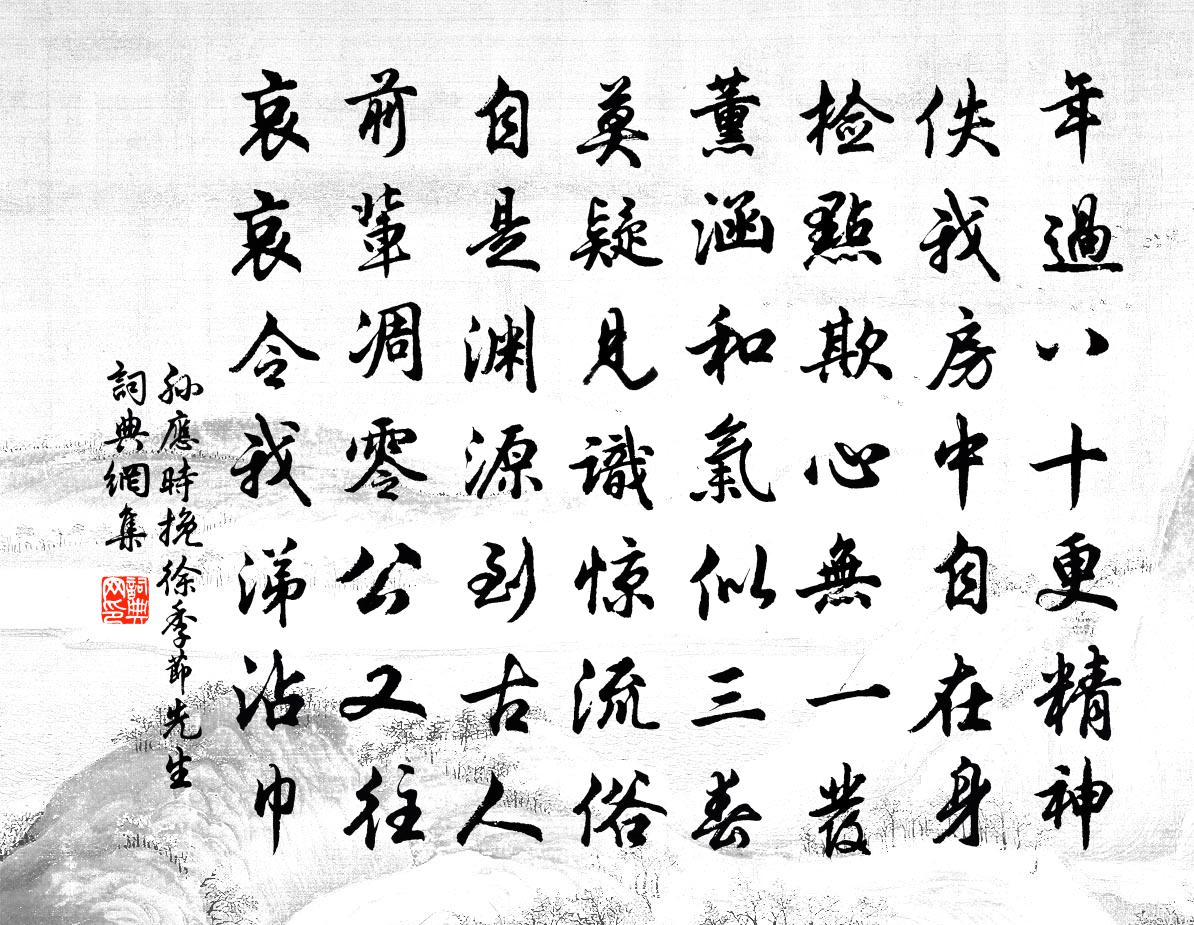 年過八十更精神
佚我房中自在身
檢點欺心無一發
薰涵和氣似三春
莫疑見識惊流俗
自是渊源到古人
前輩凋零公又往
哀哀令我涕沾巾
孙應時挽徐季節先生
詞典網集
詞典网印